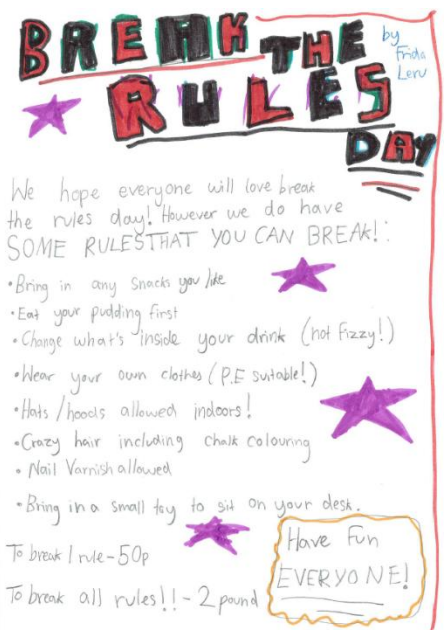 BREAK THE
by
Frida
Leru
RULES
DAY
We hope everyone will love break
the rules day! However we do have
SOME RULES THAT YOU CAN BREAK!:
• Bring in any snacks you like
• Eat your pudding first
• Change what's inside your drink (not fizzy!)
• Wear your own clothes (P.E suitable!)
• Hats/hoods allowed indoors!
• Crazy hair including chalk colouring
• Nail Varnish allowed
• Bring in a small toy to sit on your desk.
To break 1 rule - 50p
To break all rules!! - 2 pound
Have Fun
EVERYONE!